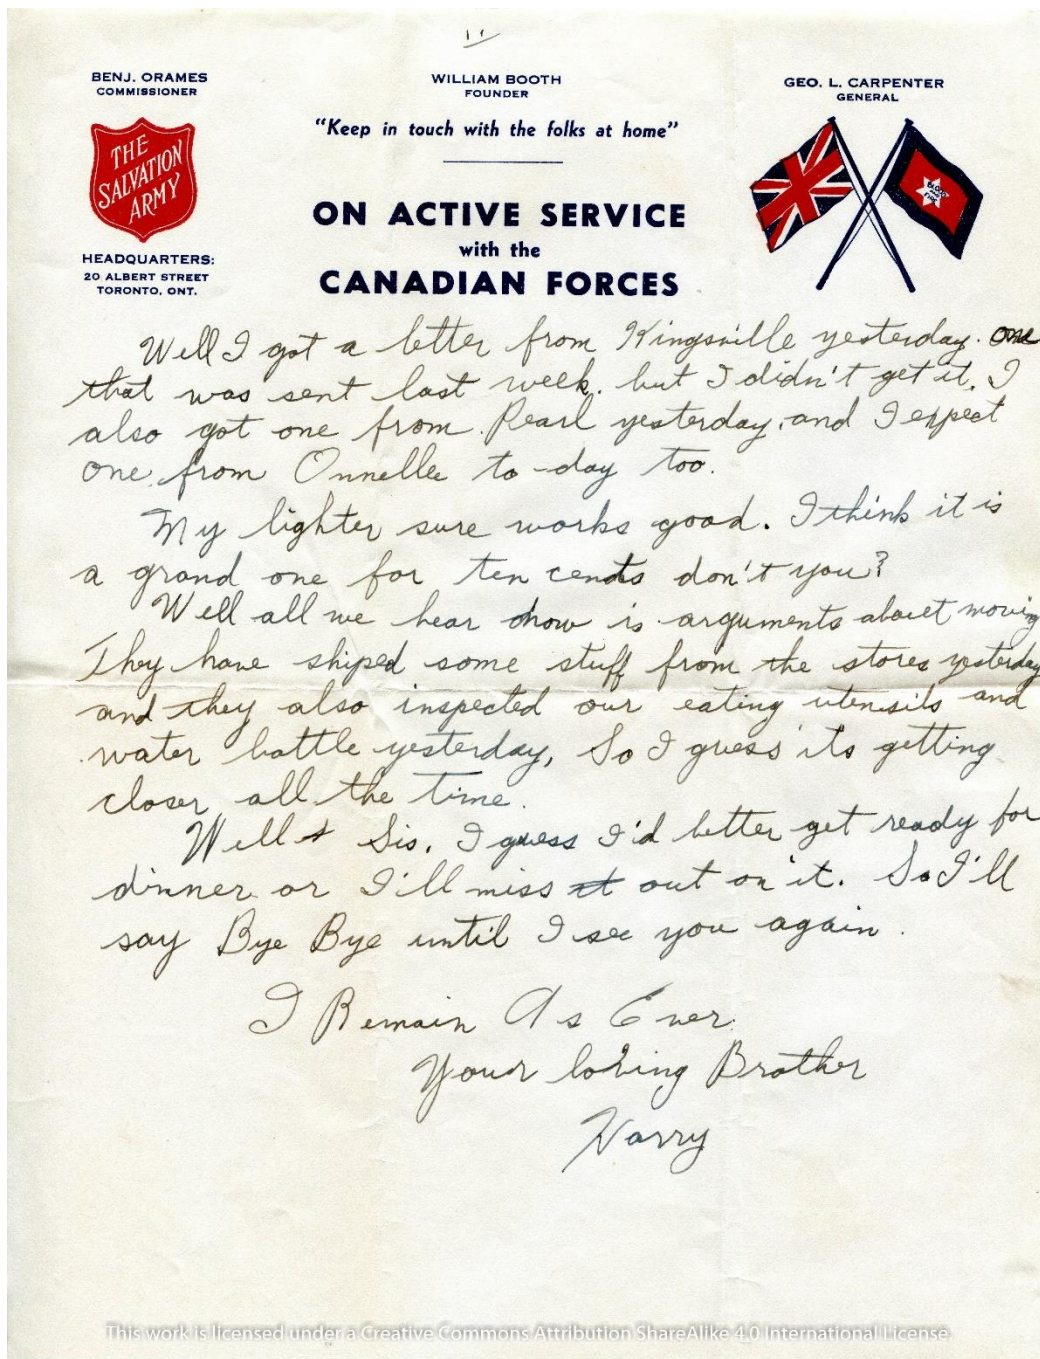 11
BENJ. ORAMES
COMMISSIONER
WILLIAM BOOTH
FOUNDER
GEO. L. CARPENTER
GENERAL
"Keep in touch with the folks at home"
THE
SALVATION
ARMY
BLOOD
AND
FIRE
ON ACTIVE SERVICE
with the
CANADIAN FORCES
HEADQUARTERS:
20 ALBERT STREET
TORONTO, ONT.
Well I got a letter from Kingsville yesterday. one
that was sent last week. but I didn't get it. I
also got one from Pearl yesterday, and I expect
one from Onnellee to-day too.
My lighter sure works good. I think it is
a grand one for ten cents don't you?
Well all we hear now is arguments about moving
They have shiped some stuff from the stores yesterday
and they also inspected our eating utensils and
water bottle yesterday, So I guess its getting
closer all the time.
Well Sis. I guess I'd better get ready for
dinner or I'll miss out on it. So I'll
say Bye Bye until I see you again.
I Remain As Ever
Your loving Brother
Harry
This work is licensed under a Creative Commons Attribution ShareAlike 4.0 International License.